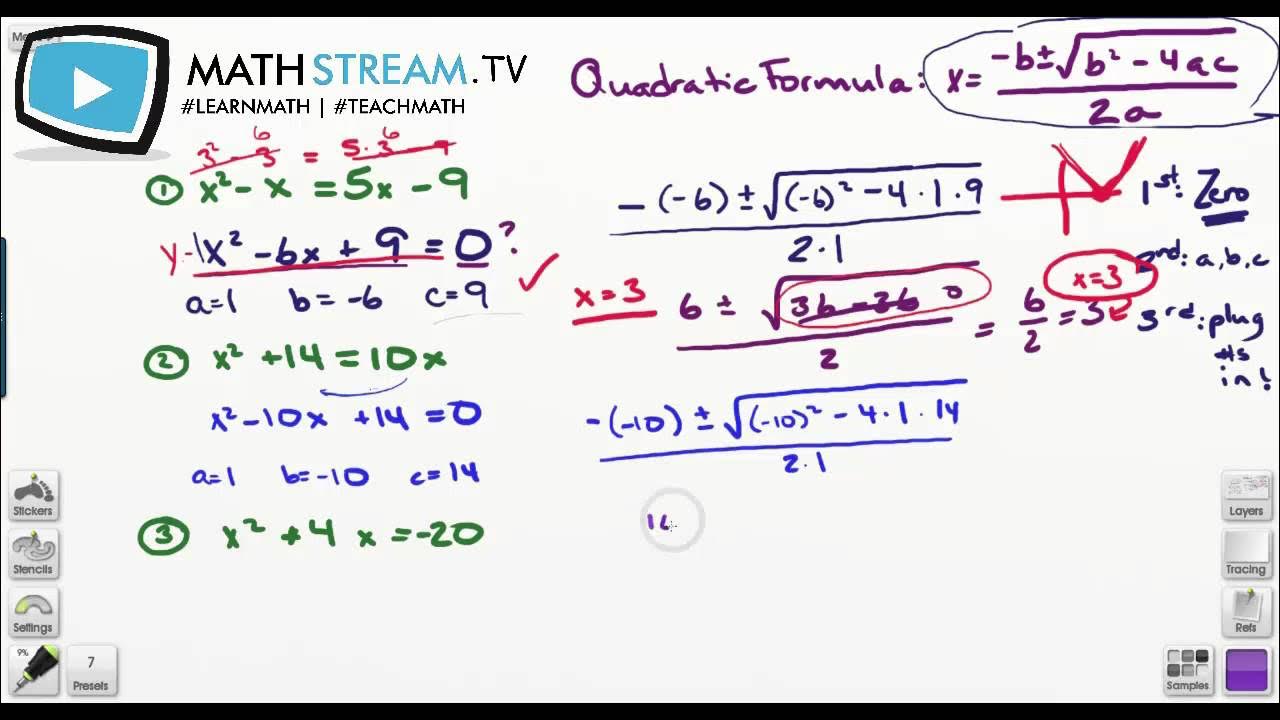 MATH STREAM.TV
#LEARNMATH | #TEACHMATH
Quadratic Formula: x = (-b ± √(b² - 4ac)) / 2a
3² - 3 = 5·3 - 9
6 6
① x² - x = 5x - 9
y = 1x² - 6x + 9 = 0?
a=1 b=-6 c=9
② x² + 14 = 10x
x² - 10x + 14 = 0
a=1 b=-10 c=14
③ x² + 4x = -20
(-(-6) ± √((-6)² - 4·1·9)) / 2·1
x=3
(6 ± √(36 - 36 0)) / 2 = 6/2 = 3
x=3
(-(-10) ± √((-10)² - 4·1·14)) / 2·1
1st: Zero
2nd: a,b,c
3rd: plug
#s
in!
Stickers
Stencils
Settings
9%
7
Presets
Layers
Tracing
Refs
Samples